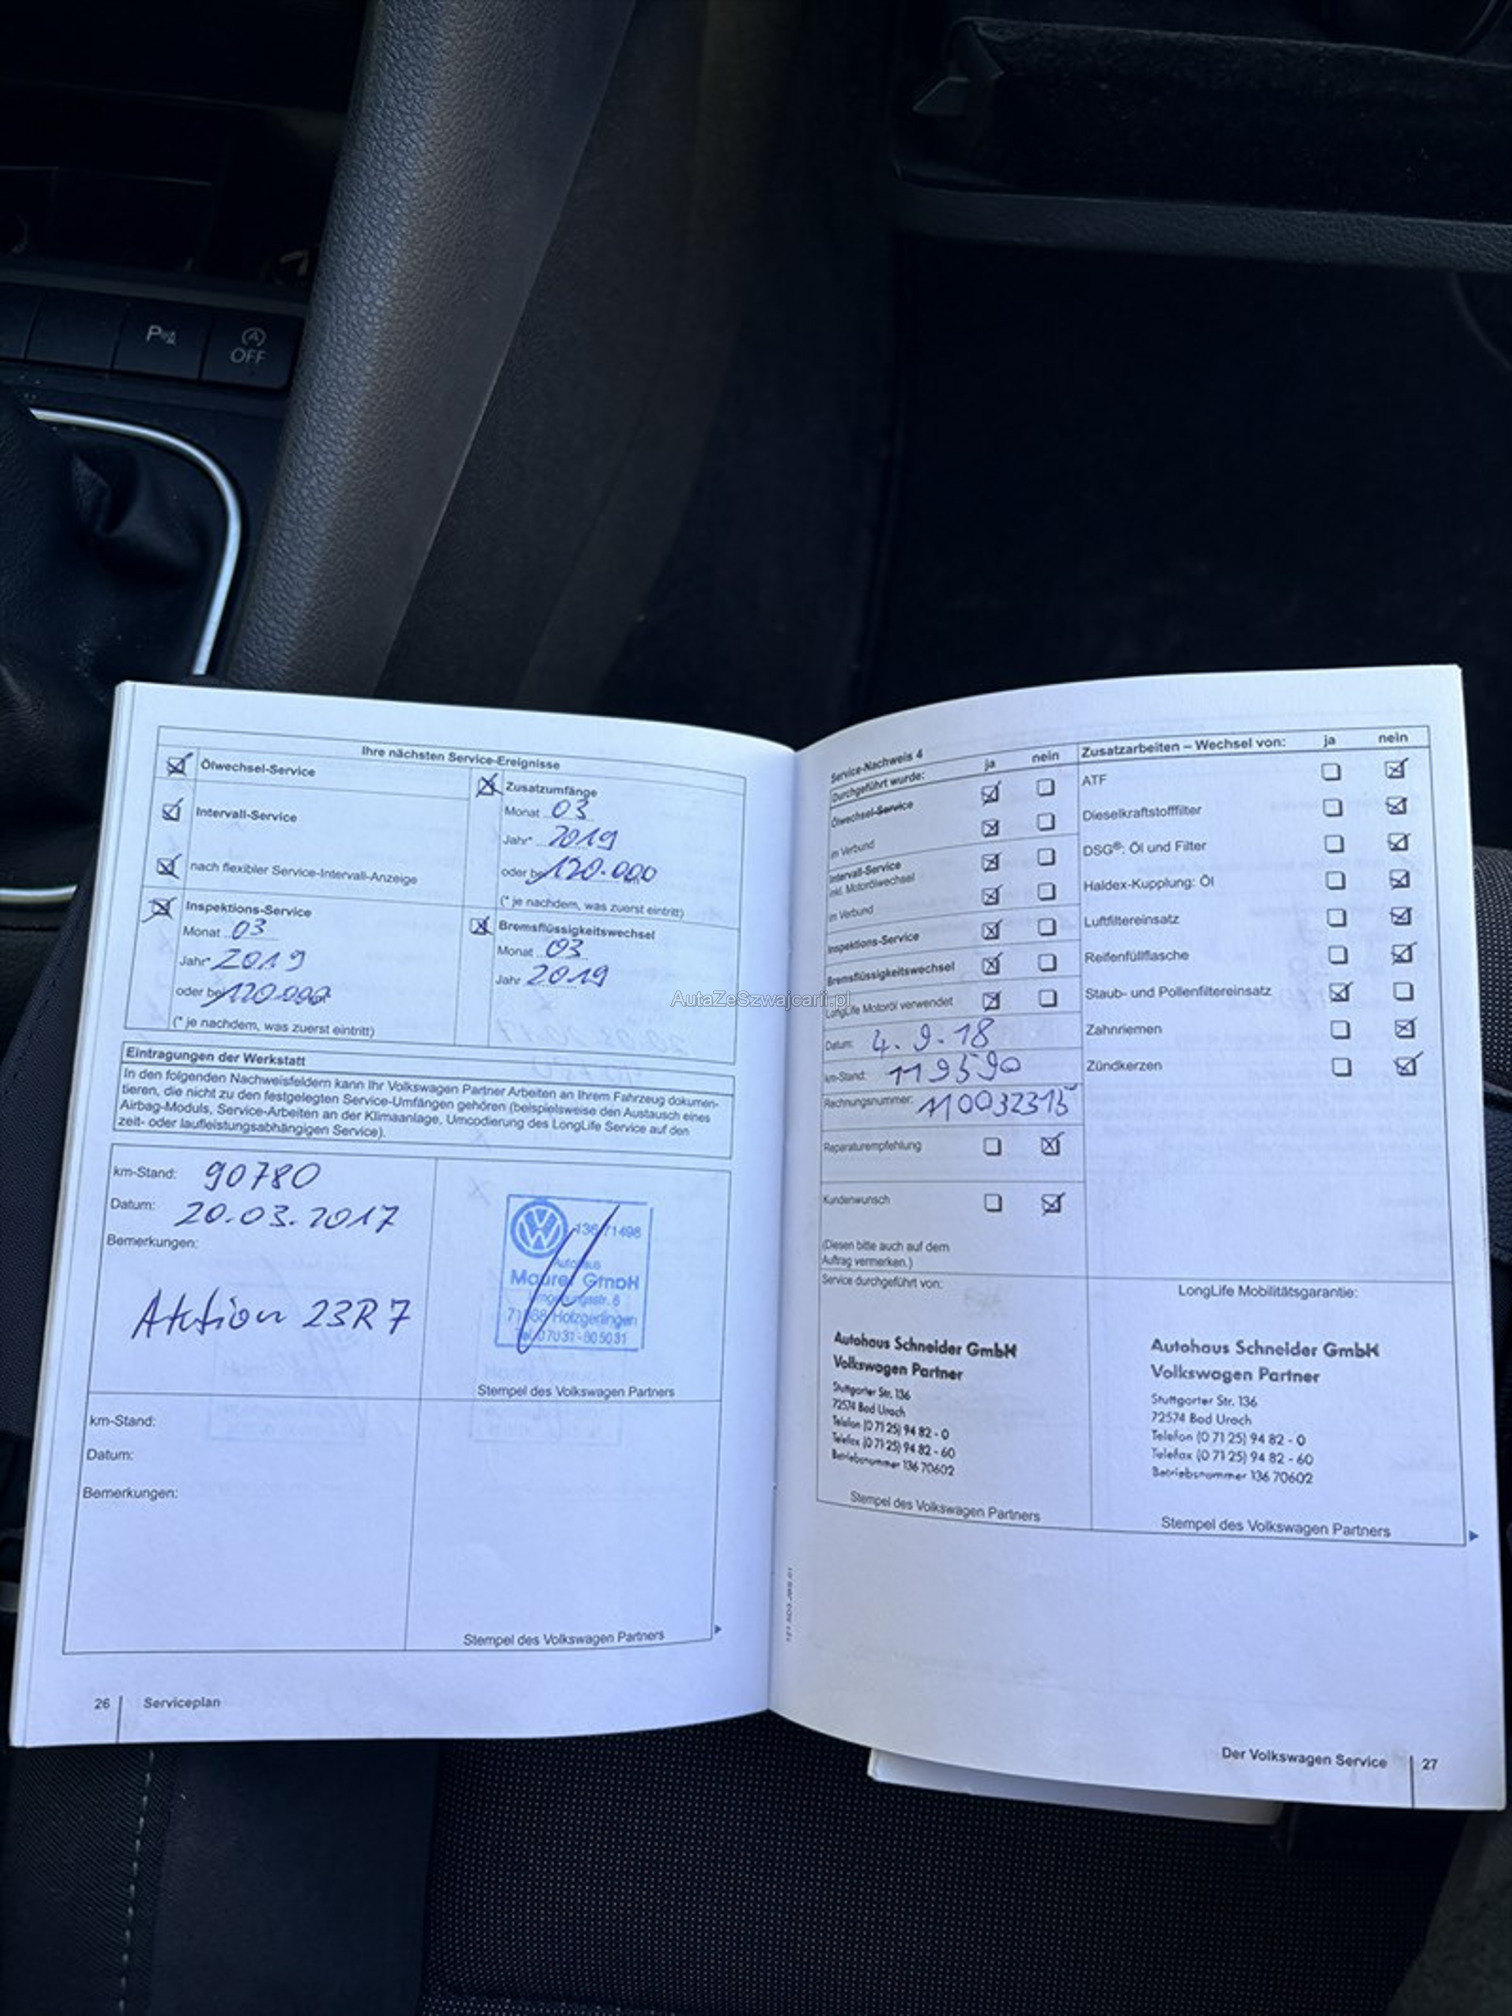 P
OFF
Ihre nächsten Service-Ereignisse
Ölwechsel-Service
Intervall-Service
nach flexibler Service-Intervall-Anzeige
Zusatzumfänge
Monat 03
Jahr* 2019
oder bei 120.000 km
(* je nachdem, was zuerst eintritt)
Inspektions-Service
Monat 03
Jahr* 2019
oder bei 120.000 km
(* je nachdem, was zuerst eintritt)
Bremsflüssigkeitswechsel
Monat 03
Jahr 2019
Eintragungen der Werkstatt
In den folgenden Nachweisfeldern kann Ihr Volkswagen Partner Arbeiten an Ihrem Fahrzeug dokumen-
tieren, die nicht zu den festgelegten Service-Umfängen gehören (beispielsweise den Austausch eines
Airbag-Moduls, Service-Arbeiten an der Klimaanlage, Umcodierung des LongLife Service auf den
zeit- oder laufleistungsabhängigen Service).
km-Stand: 90780
Datum: 20.03.2017
Bemerkungen:
Aktion 23R7
136 71498
Autohaus
Maurer GmbH
71088 Holzgerlingen
Tel. 07031-605031
Stempel des Volkswagen Partners
km-Stand:
Datum:
Bemerkungen:
Stempel des Volkswagen Partners
26 Serviceplan
Service-Nachweis 4
Durchgeführt wurde: ja nein
Ölwechsel-Service
im Verbund
Intervall-Service
inkl. Motorölwechsel
im Verbund
Inspektions-Service
Bremsflüssigkeitswechsel
LongLife Motoröl verwendet
Datum: 4.9.18
km-Stand: 119590
Rechnungsnummer: 110032315
Reparaturempfehlung
Kundenwunsch
(Diesen bitte auch auf dem
Auftrag vermerken.)
Zusatzarbeiten – Wechsel von: ja nein
ATF
Dieselkraftstofffilter
DSG®: Öl und Filter
Haldex-Kupplung: Öl
Luftfiltereinsatz
Reifenfüllflasche
Staub- und Pollenfiltereinsatz
Zahnriemen
Zündkerzen
Service durchgeführt von:
Autohaus Schneider GmbH
Volkswagen Partner
Stuttgarter Str. 136
72574 Bad Urach
Telefon (0 71 25) 94 82 - 0
Telefax (0 71 25) 94 82 - 60
Betriebsnummer 136 70602
Stempel des Volkswagen Partners
LongLife Mobilitätsgarantie:
Autohaus Schneider GmbH
Volkswagen Partner
Stuttgarter Str. 136
72574 Bad Urach
Telefon (0 71 25) 94 82 - 0
Telefax (0 71 25) 94 82 - 60
Betriebsnummer 136 70602
Stempel des Volkswagen Partners
Der Volkswagen Service 27
AutaZeSzwajcarii.pl